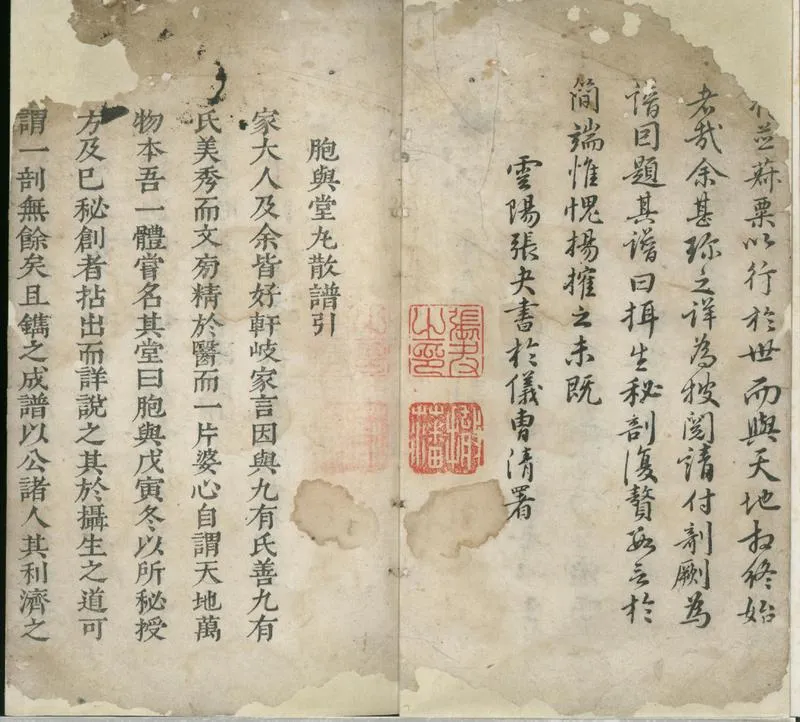 並菽粟以行於世而與天地相終始
者哉余甚珍之詳為披閱請付剞劂為
譜因題其譜曰攝生秘剖復贅數言於
简端惟愧揚搉之未既
雲陽張夬書於儀曹清署
張夬之印
胞與堂丸散譜引
家大人及余皆好軒岐家言因與九有氏善九有
氏美秀而文旁精於醫而一片婆心自謂天地萬
物本吾一體嘗名其堂曰胞與戊寅冬以所秘授
方及巳秘創者拈出而詳說之其於攝生之道可
謂一剖無餘矣且鐫之成譜以公諸人其利濟之